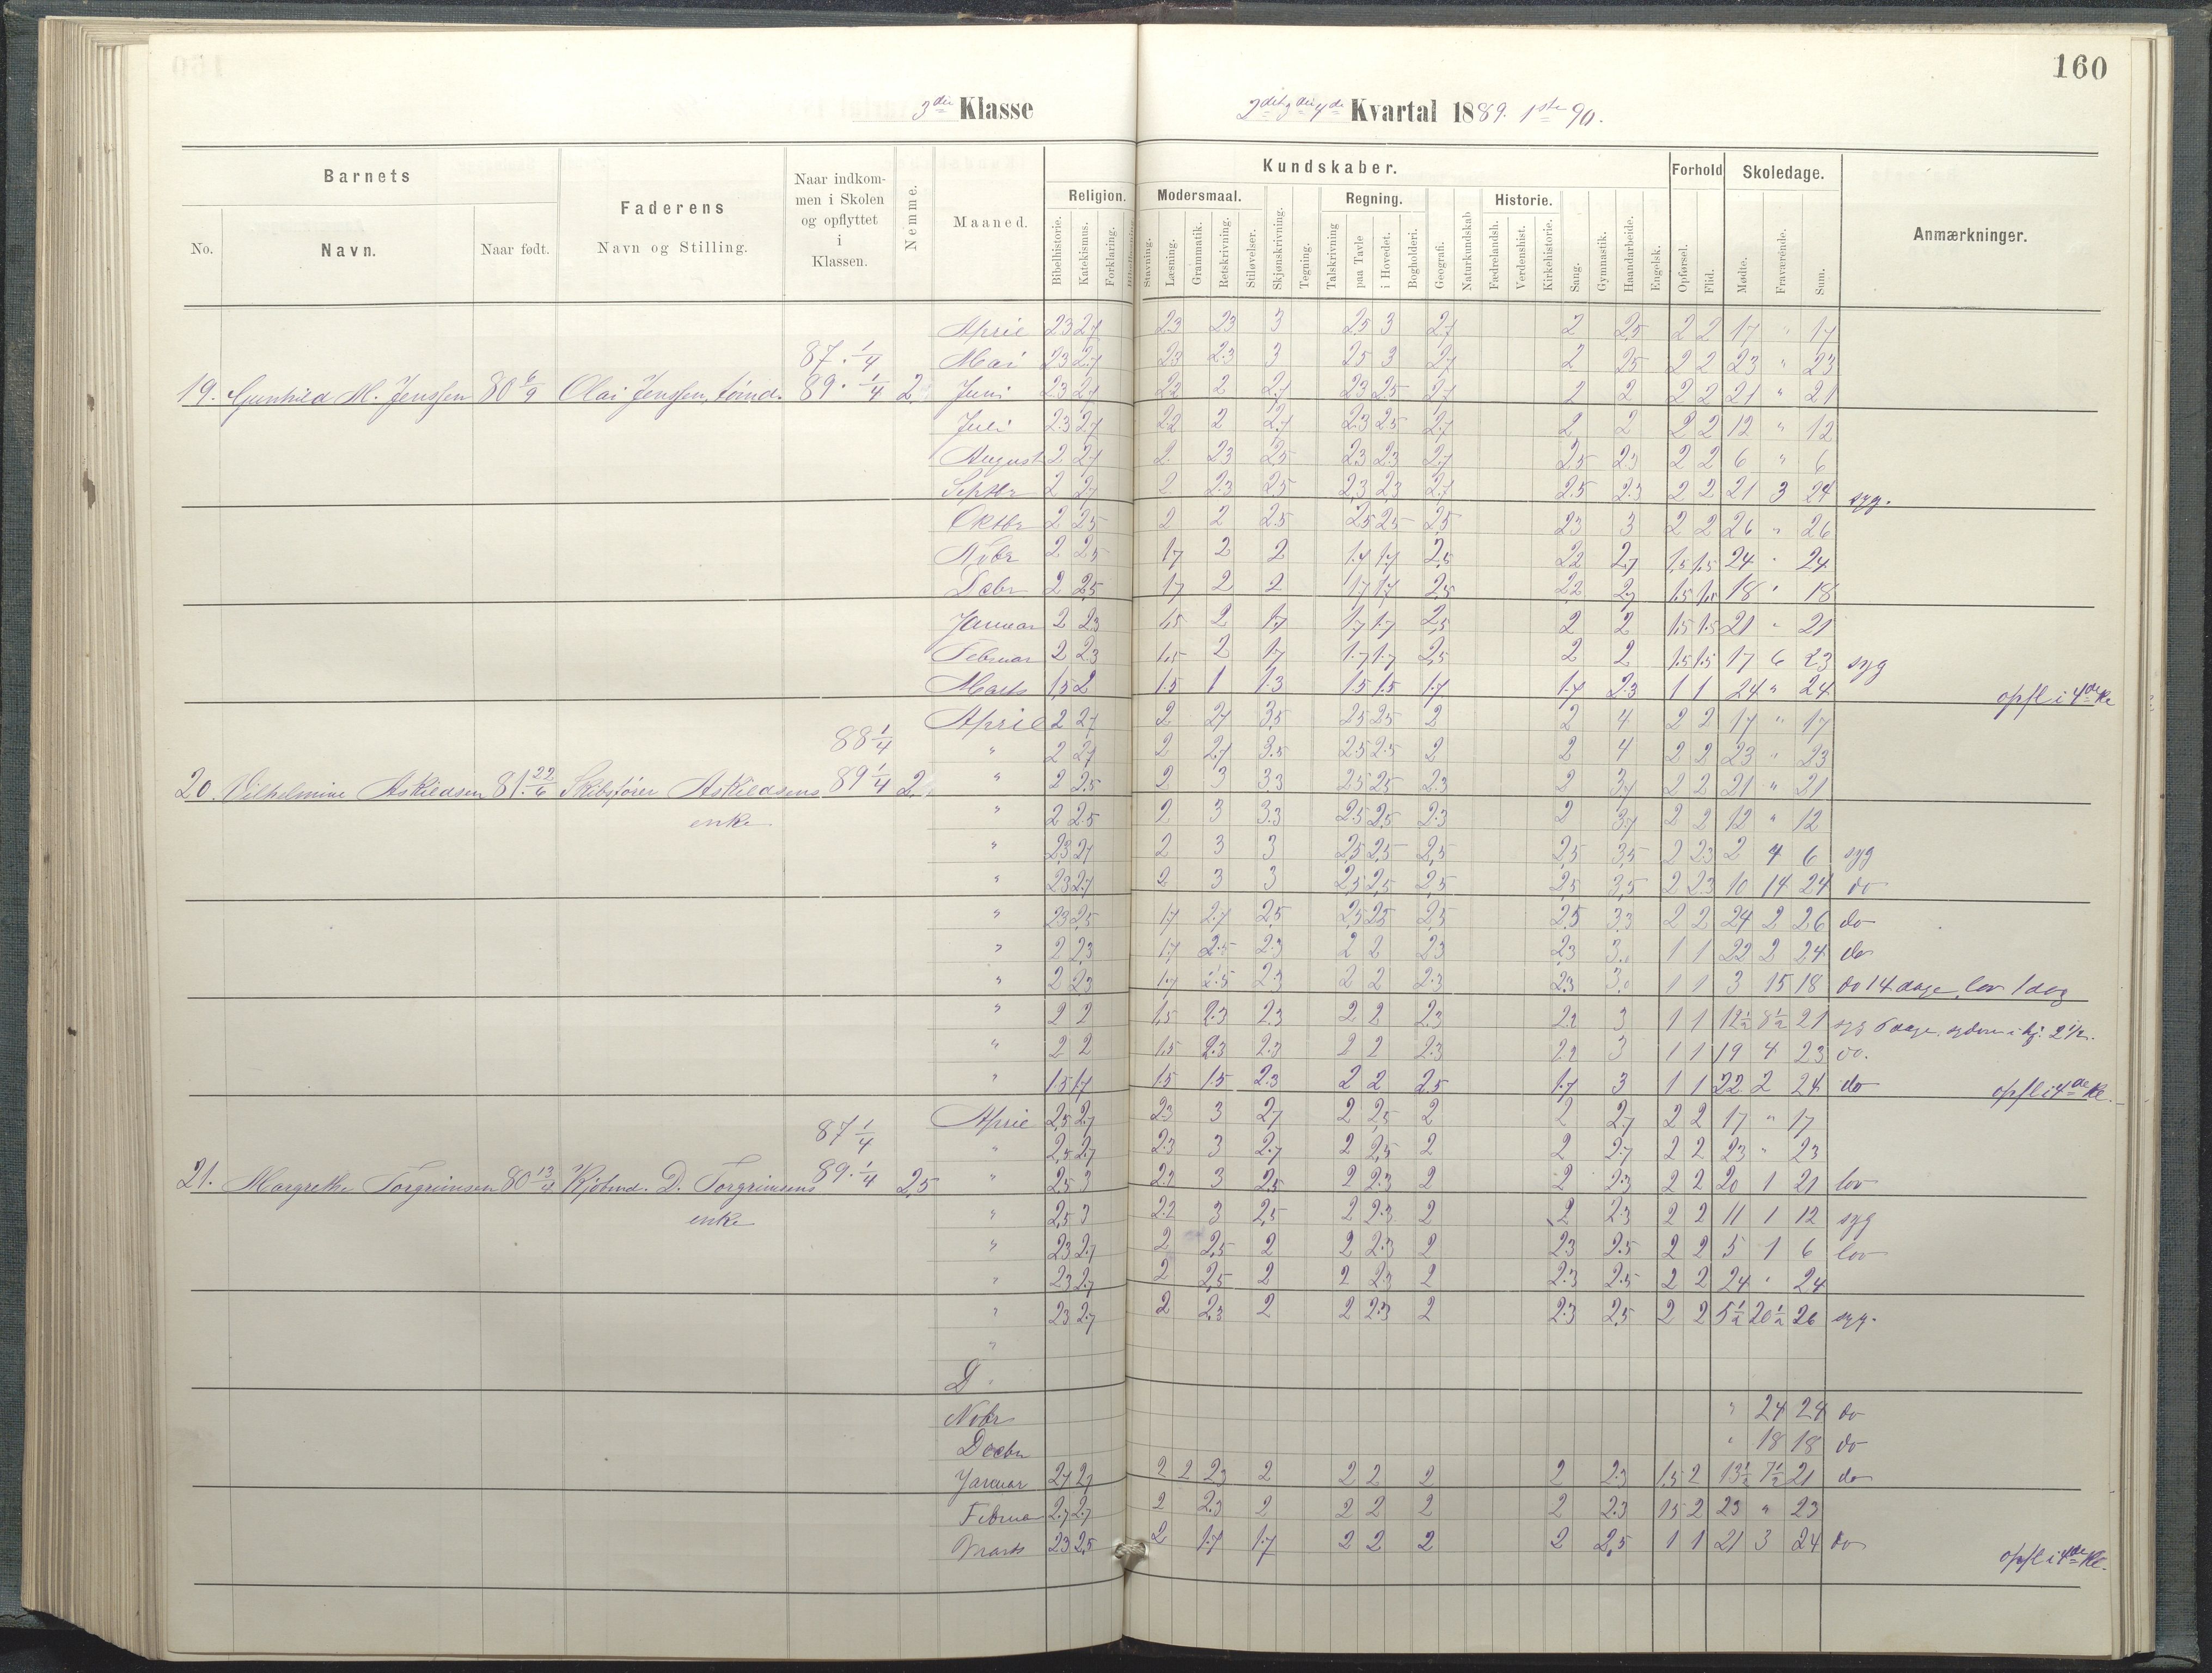 160
3die Klasse
2det 3die 4de Kvartal 1889. 1ste 90.
Barnets
No.
Navn.
Naar født.
Faderens
Navn og Stilling.
Naar indkommen i Skolen og opflyttet i Klassen.
Nemme.
Maaned.
Kundskaber.
Religion.
Bibelhistorie. Katekismus. Forklaring.
Modersmaal.
Stavning. Læsning. Grammatik. Retskrivning. Stiløvelser.
Skjønskrivning. Tegning.
Regning.
Talskrivning paa Tavle i Hovedet. Bogholderi.
Geografi. Naturkundskab
Historie.
Fædrelandsh. Verdenshist. Kirkehistorie.
Sang. Gymnastik. Haandarbeide. Engelsk.
Forhold
Opførsel. Flid.
Skoledage.
Mødte. Fraværende. Sum.
Anmærkninger.
April 2.3 2.7 2.3 2.3 3 2.5 3 2.7 2 2.5 2 2 17 " 17
87. 1/4
Mai 2.3 2.7 2.3 2.3 3 2.5 3 2.7 2 2.5 2 2 23 " 23
19. Gunhild M. Jenssen 80 6/9 Olai Jenssen, tømd. 89. 1/4 2. Juni 2.3 2.7 2.2 2 2.7 2.3 2.5 2.7 2 2 2 2 21 " 21
Juli 2.3 2.7 2.2 2 2.7 2.3 2.5 2.7 2 2 2 2 12 " 12
August 2 2.7 2 2.3 2.5 2.3 2.3 2.7 2.5 2.3 2 2 6 " 6
Septbr 2 2.7 2 2.3 2.5 2.3 2.3 2.7 2.5 2.3 2 2 21 3 24 syg.
Oktbr 2 2.5 2 2 2.5 2.5 2.5 2.5 2.3 3 2 2 26 " 26
Nobr 2 2.5 1.7 2 2 1.7 1.7 2.5 2.2 2.7 1.5 1.5 24 " 24
Debr 2 2.5 1.7 2 2 1.7 1.7 2.5 2.2 2.7 1.5 1.5 18 " 18
Januar 2 2.3 1.5 2 1.7 1.7 1.7 2.5 2 2 1.5 1.5 21 " 21
Februar 2 2.3 1.5 2 1.7 1.7 1.7 2.5 2 2 1.5 1.5 17 6 23 syg
Marts 1.5 2 1.5 1 1.3 1.5 1.5 1.7 1.7 2.3 1 1 24 " 24 opfl i 4de Kl
April 2 2.7 2 2.7 3.5 2.5 2.5 2 2 4 2 2 17 " 17
88 1/4
" 2 2.7 2 2.7 3.5 2.5 2.5 2 2 4 2 2 23 " 23
20. Vilhelmine Askildsen 81. 22/6 Skibsfører Askildsens 89 1/4 2. " 2 2.5 2 3 3.3 2.5 2.5 2.3 2 3.7 2 2 21 " 21
enke " 2 2.5 2 3 3.3 2.5 2.5 2.3 2 3.7 2 2 12 " 12
" 2.3 2.7 2 3 3 2.5 2.5 2.5 2.5 3.5 2 2.3 2 4 6 syg
" 2.3 2.7 2 3 3 2.5 2.5 2.5 2.5 3.5 2 2.3 10 14 24 do
" 2.3 2.5 1.7 2.7 2.5 2.5 2.5 2.5 2.5 3.3 2 2 24 2 26 do
" 2 2.3 1.7 2.5 2.3 2 2 2.3 2.3 3. 1 1 22 2 24 do
" 2 2.3 1.7 2.5 2.3 2 2 2.3 2.3 3. 1 1 3 15 18 do 14 dage, lov 1 dag
" 2 2 1.5 2.3 2.3 2 2 2.3 2.2 3 1 1 12 1/2 8 1/2 21 syg 6 dage
" 2 2 1.5 2.3 2.3 2 2 2.3 2.2 3 1 1 19 4 23 do.
" 1.5 1.7 1.5 1.5 2.3 2 2 2.5 1.7 3 1 1 22 2 24 do opfl i 4de Kl.
April 2.5 2.7 2.3 3 2.7 2 2.5 2 2 2.7 2 2 17 " 17
87 1/4
" 2.5 2.7 2.3 3 2.7 2 2.5 2 2 2.7 2 2 23 " 23
21. Margrethe Torgrimsen 80 13/4 Kjøbmd. D. Torgrimsens 89. 1/4 2.5 " 2.5 3 2.2 3 2.5 2 2.3 2 2 2.3 2 2 20 1 21 lov
enke " 2.5 3 2.2 3 2.5 2 2.3 2 2 2.3 2 2 11 1 12 syg
" 2.3 2.7 2 2.5 2 2 2.3 2 2.3 2.5 2 2 5 1 6 lov
" 2.3 2.7 2 2.5 2 2 2.3 2 2.3 2.5 2 2 24 " 24
" 2.3 2.7 2 2.3 2 2 2.3 2 2.3 2.5 2 2 5 1/2 20 1/2 26 syg.
"
D "
Nobr " 24 24 do
Decbr " 18 18 do
Januar 2.7 2.7 2 2 2.3 2 2 2 2 2 2.3 1.5 2 13 1/2 7 1/2 21 do
Februar 2.7 2.7 2 2.3 2 2 2 2 2 2.3 1.5 2 23 " 23
Marts 2.3 2.5 2 1.7 1.7 2 2 2 2 2.5 1 1 21 3 24 do opfl i 4de Kl.